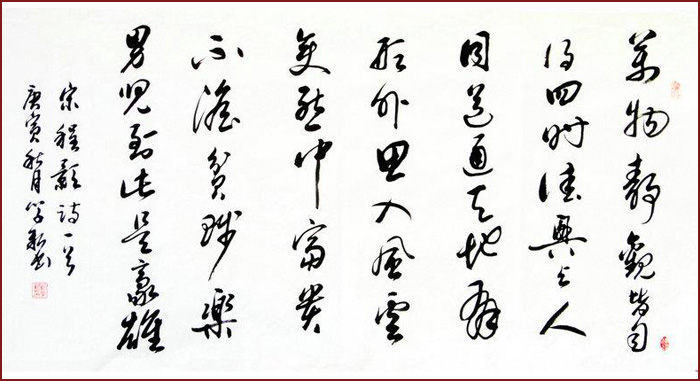 萬物靜觀皆自
得四時佳興与人
同道通天地有
形外思入風雲
變態中富貴
不淫貧賤樂
男兒到此是豪雄
宋程顥詩一首
庚寅秋月學書